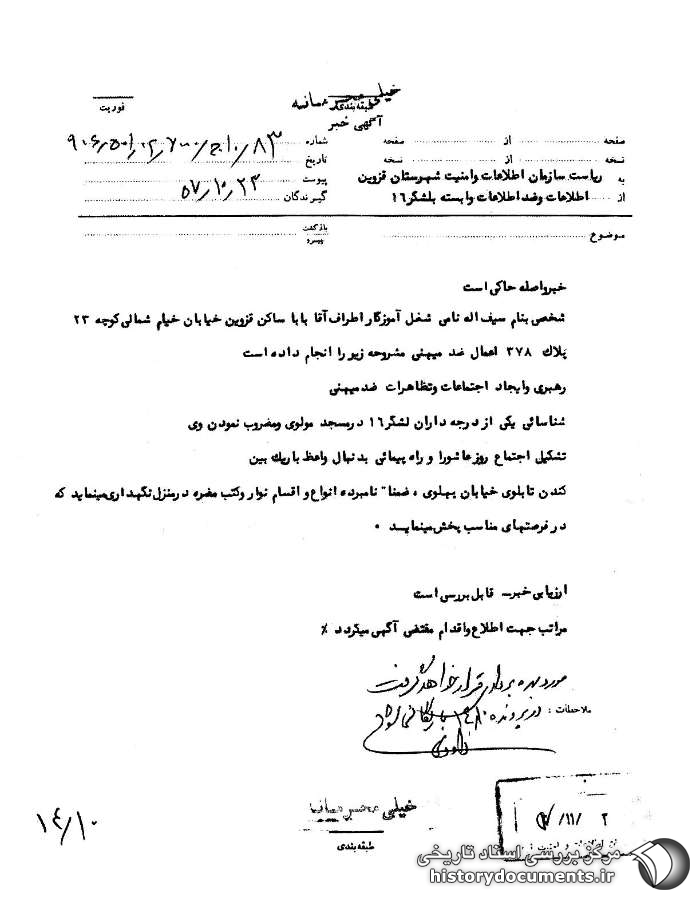 خیلی محرمانه
طبقه‌بندی
آگهی خبر
فوریت
صفحه از صفحه
شماره
نسخه از نسخه
تاریخ
به ریاست سازمان اطلاعات وامنیت شهرستان قزوین
پیوست ۵۷/۱۰/۲۳
از اطلاعات وضد اطلاعات وابسته بلشگر۱۶
گیرندگان
موضوع
بازگشت
پیرو
خبرواصله حاکی است
شخصی بنام سیف اله نامی شغل آموزگار اطراف آقا بابا ساکن قزوین خیابان خیام شمالی کوچه ۲۳
پلاك ۳۷۸ اعمال ضد میهنی مشروحه زیر را انجام داده است
رهبری وایجاد اجتماعات وتظاهرات ضد میهنی
شناسائی یکی از درجه داران لشگر۱۶ در مسجد مولوی ومضروب نمودن وی
تشکیل اجتماع روز عاشورا و راه پیمائی بدنبال واعظ باریك بین
کندن تابلوی خیابان پهلوی ، ضمنا" نامبرده انواع و اقسام نوار وکتب مضره درمنزل نگهداری مینماید که
در فرصتهای مناسب پخش مینماید ۰
ارزیابی خبر ـ قابل بررسی است
مراتب جهت اطلاع واقدام مقتضی آگهی میگردد ٪
مورد بهره برداری قرار خواهد گرفت
ملاحظات : در پرونده
خیلی محرمانه
طبقه‌بندی
۱۴/۱۰
۲ /۱۱/
مرکز بررسی اسناد تاریخی
historydocuments.ir